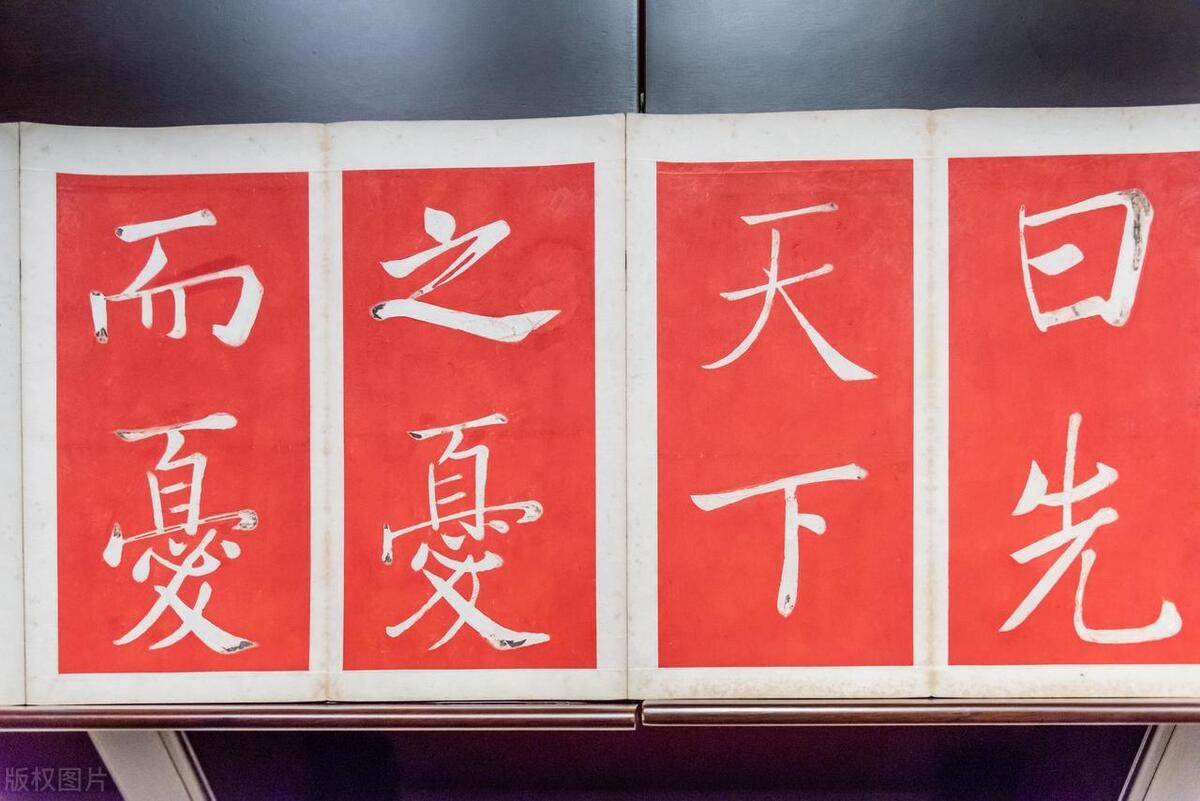 曰先
天下
之憂
而憂
版权图片